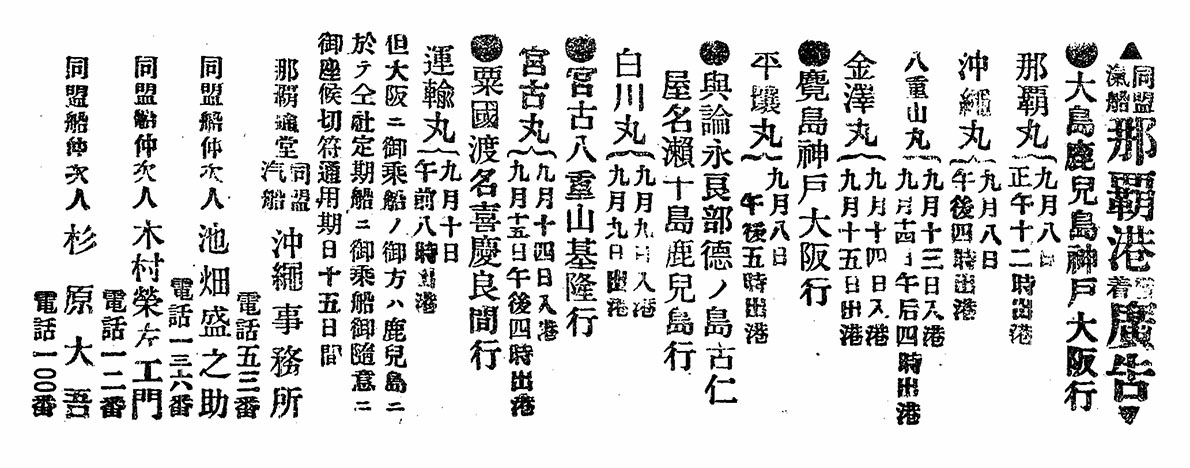 ▲同盟汽船那覇港發着廣告▼
●大島鹿兒島神戸大阪行
那覇丸 九月八日正午十二時出港
沖繩丸 九月八日午後四時出港
八重山丸 九月十三日入港九月十四日午后四時出港
金澤丸 九月十四日入港九月十五日出港
●鹿島神戸大阪行
平壤丸 九月八日午後五時出港
●與論永良部德ノ島古仁
屋名瀬十島鹿兒島行
白川丸 九月九日入港九月九日出港
●宮古八重山基隆行
宮古丸 九月十四日入港九月十五日午後四時出港
●粟國渡名喜慶良間行
運輸丸 九月十日午前八時出港
但大阪ニ御乘船ノ御方ハ鹿兒島ニ
於テ仝社定期船ニ御乘船御隨意ニ
御座候切符通用期日十五日間
那覇通堂 同盟汽船 沖繩事務所
電話五三番
同盟船仲次人 池畑盛之助
電話一三六番
同盟船仲次人 木村榮左工門
電話一二番
同盟船仲次人 杉原大吾
電話一〇〇番